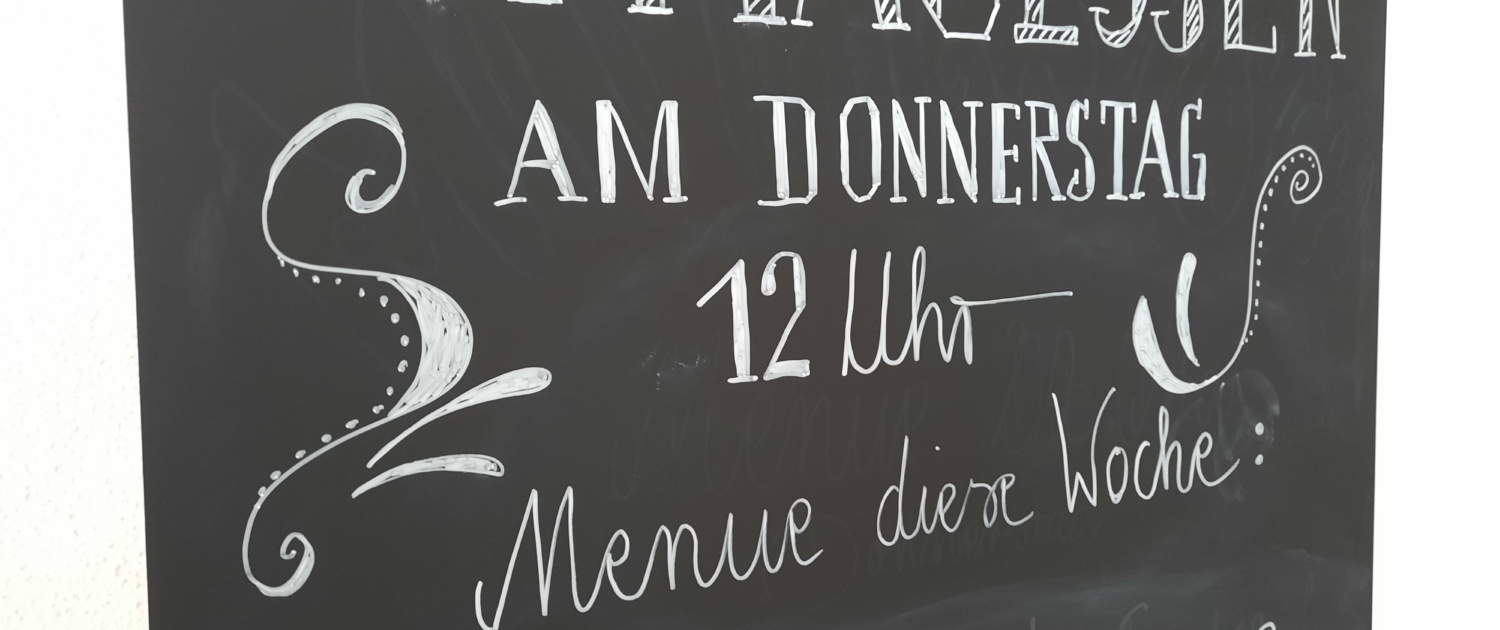 AM DONNERSTAG
12 Uhr
Menue diese Woche: